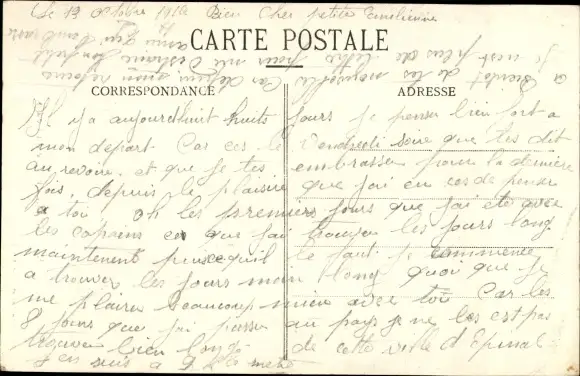 Le 13 octobre 191 Bien cher petite Emilienne
CARTE POSTALE
a bientot de tes nouvelles Car depuis
je n'est plus de lettre pour me distraire
CORRESPONDANCE
ADRESSE
Il y a aujourdhuit huits jours je penser bien fort a
mon depart Car ces le vendredi soire que tes dit
au revoire et que je tes embrasser pour la derniere
fois. depuis le plaisire que j'ai eu ces de penser
a toi! oh les premiers jours que j'ai etes avec
les copains ce que j'ai trouver les jours long
maintenent puisequil le faut je commence
a trouver les jours moin long quoi que je
me plaire beaucoup mieu avec toi Car les
8 jours que j'ai passer au pays je ne les est pas
trouver bien long de cette ville d'Epinal
j'en suis a